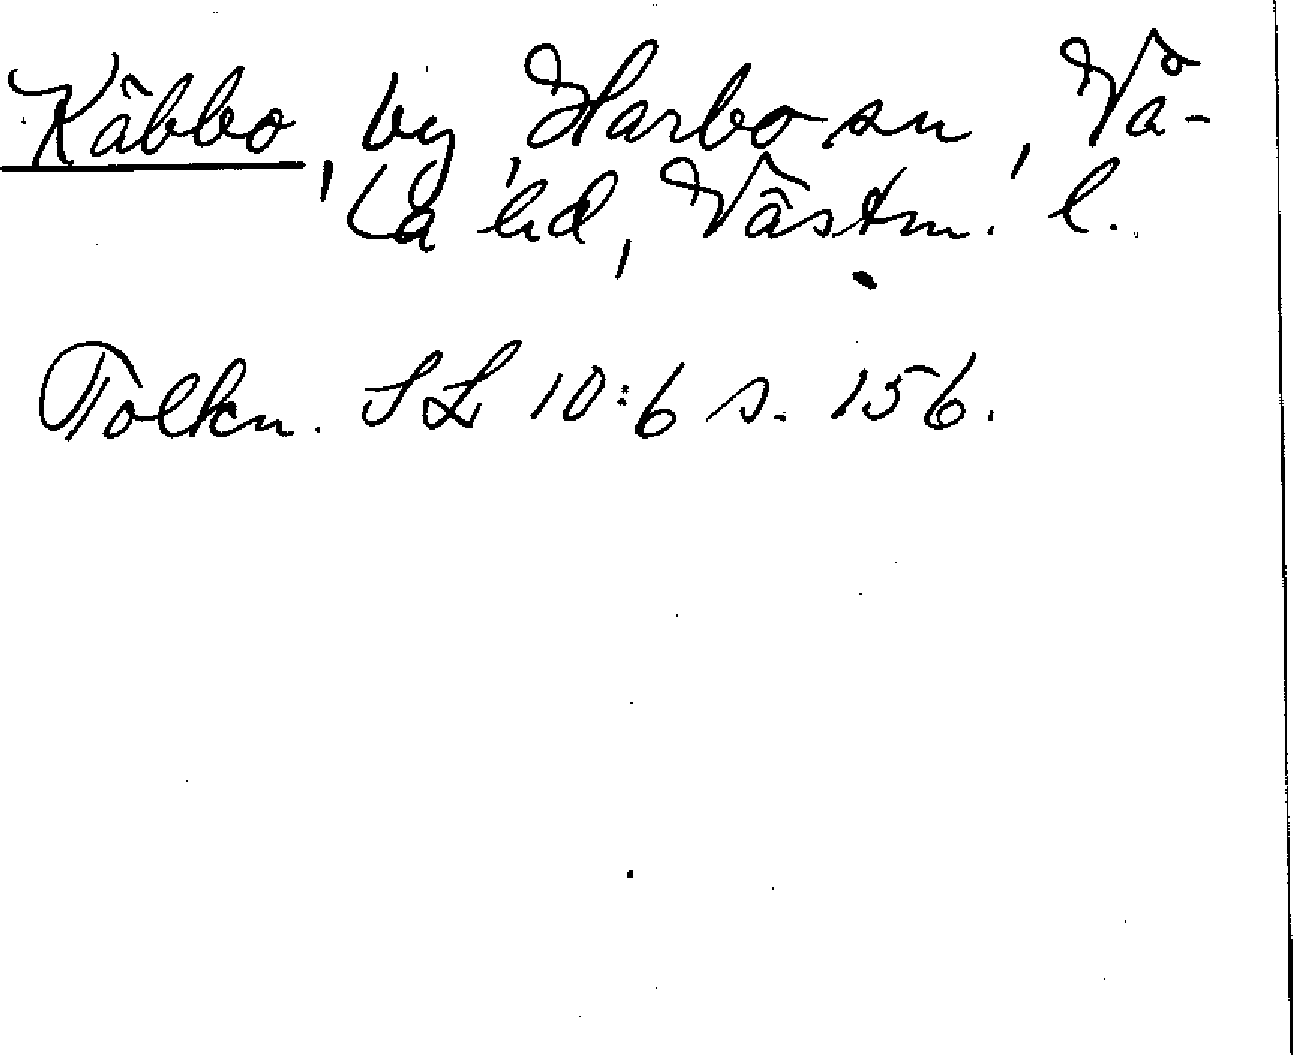 Käbbo, by, Harbo sn, Vå-
la hd, Västm. l.
Tolkn. SL 10:6 s. 156.